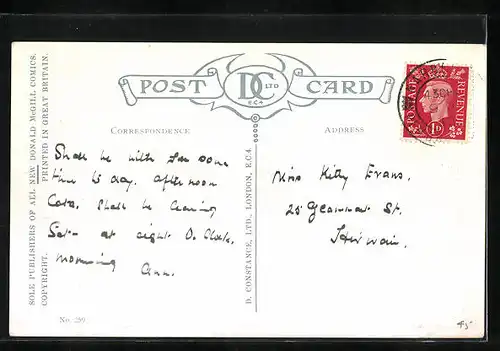 POST
DC
LTD
E.C.4
CARD
CORRESPONDENCE
ADDRESS
Shall be with you some
time to day. afternoon
Shall be leaving
at eight O. Clock.
morning Ann.
Miss Kitty Evans.
25 St.
Hirwain.
POSTAGE
REVENUE
1D
SOLE PUBLISHERS OF ALL NEW DONALD McGILL COMICS.
COPYRIGHT.
PRINTED IN GREAT BRITAIN.
D. CONSTANCE, LTD., LONDON, E.C.4.